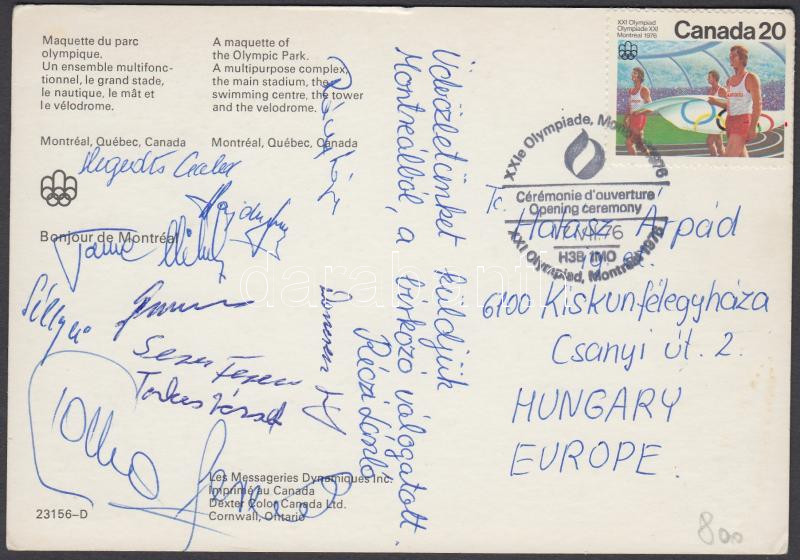 Maquette du parc
olympique.
Un ensemble multifonc-
tionnel, le grand stade,
le nautique, le mât et
le vélodrome.
Montréal, Québec, Canada
A maquette of
the Olympic Park.
A multipurpose complex,
the main stadium, the
swimming centre, the tower
and the velodrome.
Montréal, Québec, Canada
Bonjour de Montréal
Üdvözletünket küldjük
Montreálból, a birkózó válogatott.
Réczi László
XXI Olympiad
Olympiade XXI
Montréal 1976
Canada 20
XXIe Olympiade, Montréal 1976
Cérémonie d'ouverture
Opening ceremony
VII 76
H3B 1M0
XXI Olympiad, Montréal 1976
Halász Árpád
6100 Kiskunfélegyháza
Csanyi út. 2.
HUNGARY
EUROPE.
Hegedűs Csaba
Seres Ferenc
darabanth
Les Messageries Dynamiques Inc.
Imprimé au Canada
Dexter Color Canada Ltd.
Cornwall, Ontario
23156-D
800